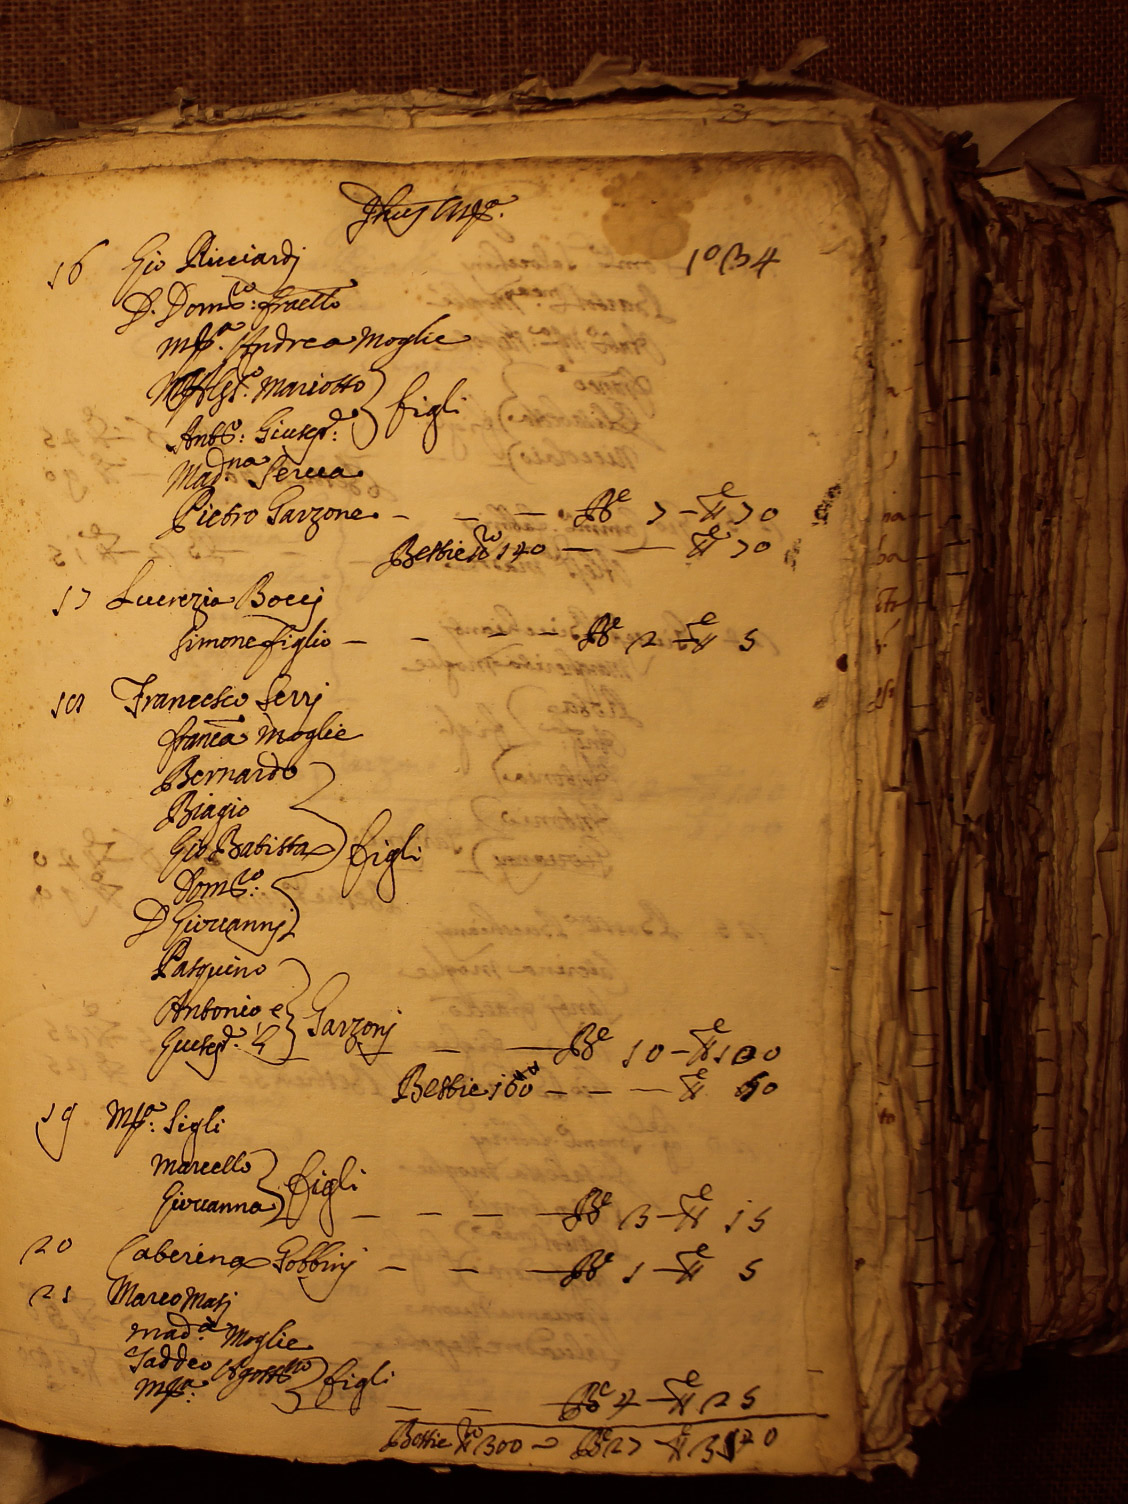 1634
16 Gio Ricciardj
D. Dom.co fratello
M.a Andrea Moglie
Mariotto } figli
Ant.o Giusep.e
Mad.na Serva
Pietro Garzone - - - B.e 7 - ₶e 70
Bestie n.o 140 - - ₶ 70
17 Lucrezia Boccj
Simone figlio - - - B.e 2 - ₶ 5
18 Francesco Serrj
Fran.ca Moglie
Bernardo
Biagio
Gio Batista } figli
Dom.co
D Giovannj
Pasquino
Antonio e } Garzonj
Giusep.e - - B.e 10 - ₶e 100
Bestie 160 - - - ₶ 80
19 M.a Sigli
Marcello } figli
Giovanna - - - B.e 3 - ₶e 15
20 Caterina Gobbinj - - - B.e 1 - ₶e 5
21 Marco Masj
Mad.a Moglie
Taddeo Agost.no } figli
M.a - - B.e 4 - ₶e 25
Bestie n.o 300 - B.e 27 - ₶e